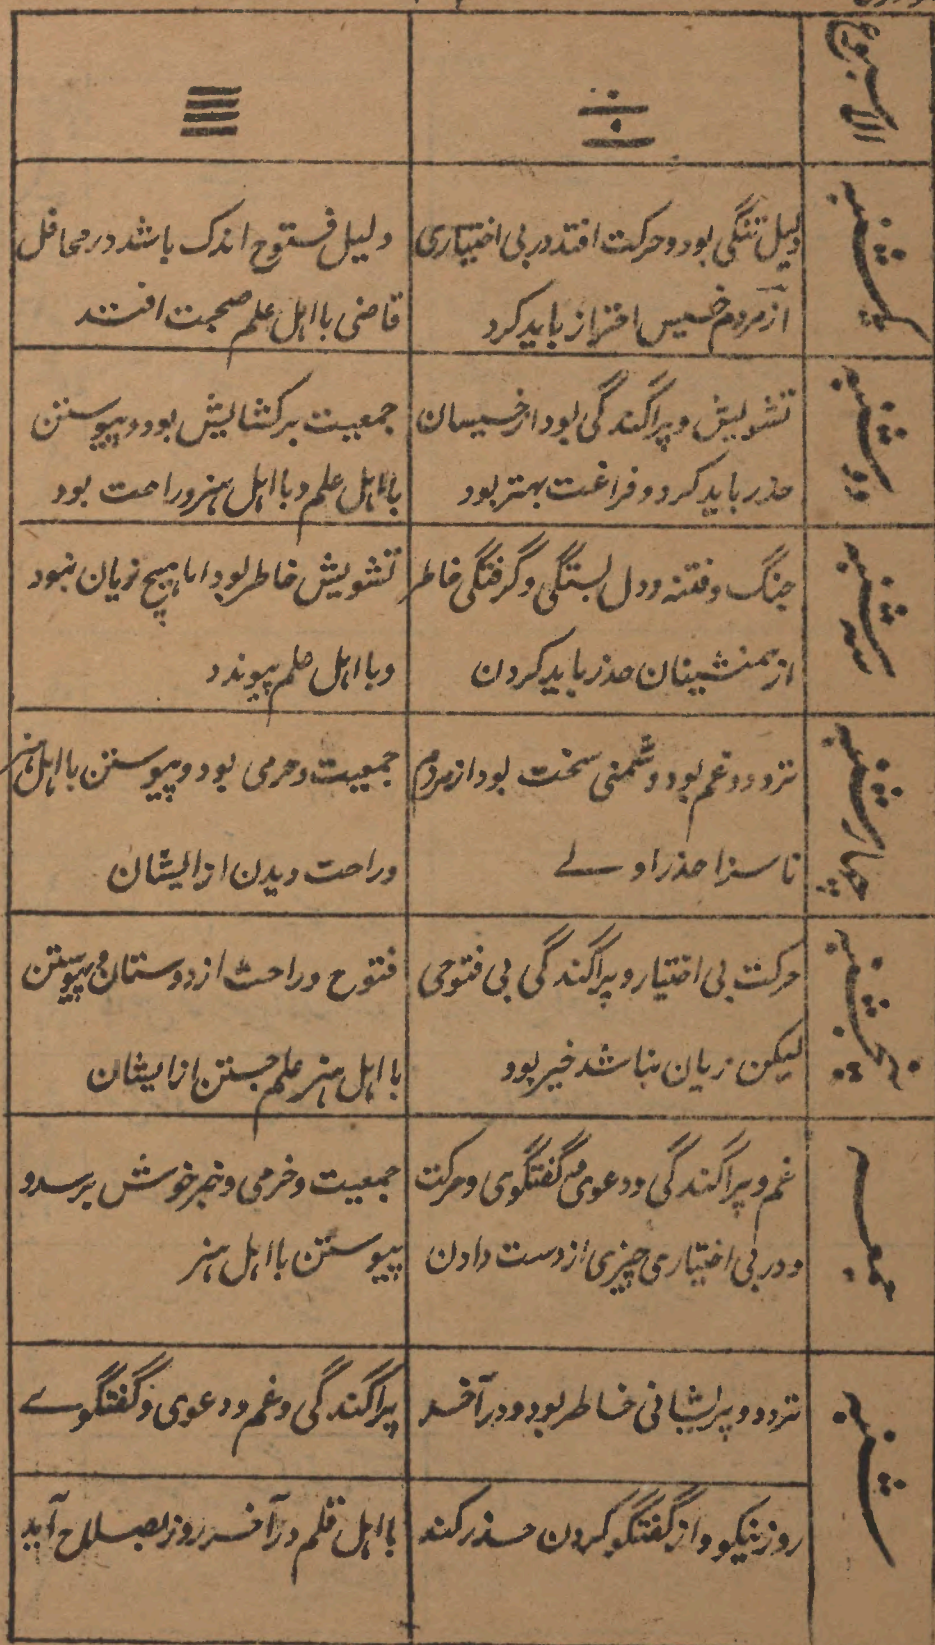 الاسبوع
یکشنبه
دلیل تنگی بود و حرکت افتد در بی اختیاری
از مردم خسیس احتراز باید کرد
دلیل فتوح اندک باشد در محافل
قاضی با اهل علم صحبت افتد
دوشنبه
تشویش و پراگندگی بود از خسیسان
حذر باید کرد و فراغت بهتر بود
جمعیت بر کشایش بود و پیوستن
با اهل علم و با اهل هنر و راحت بود
سه شنبه
جنگ و فتنه و دل بستگی و گرفتگی خاطر
از همنشینان حذر باید کردن
تشویش خاطر بود اما هیچ زیان نبود
و با اهل علم پیوندد
چهارشنبه
تردد و غم بود و دشمنی سخت بود از مردم
ناسزا حذر اولے
جمعیت و خرمی بود و پیوستن با اهل هنر
و راحت دیدن از ایشان
پنجشنبه
حرکت بی اختیار و پراگندگی بی فتوحی
لیکن زیان نباشد خیر بود
فتوح و راحت از دوستان و پیوستن
با اهل هنر علم جستن از ایشان
جمعه
غم و پراگندگی و دعوی و گفتگوی و حرکت
و در بی اختیاری چیزی از دست دادن
جمعیت و خرمی و خبر خوش برسد و
پیوستن با اهل هنر
شنبه
تردد و پریشانی خاطر بود و در آخر
روز نیکو و از گفتگو کردن حذر کند
پراگندگی و غم و دعوی و گفتگوے
با اهل قلم در آخر روز بصلاح آید